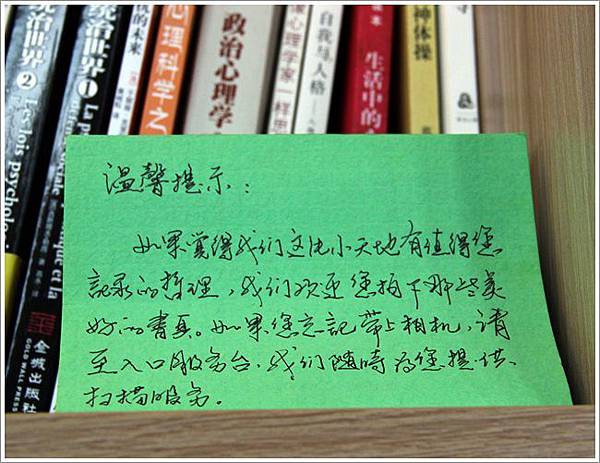 统治世界2
Les lois psycholo
统治世界1
La p
金城出版社
GOLD WALL PRESS
的未来
心理科学之
政治心理学
心理学家一样思
自我与人格
生活中的
神体操
温馨提示：
如果觉得我们这片小天地有值得您
記录的哲理，我们欢迎您拍下那些美
好的書頁。如果您忘記带上相机，请
至入口服务台，我们随時为您提供
扫描服务。